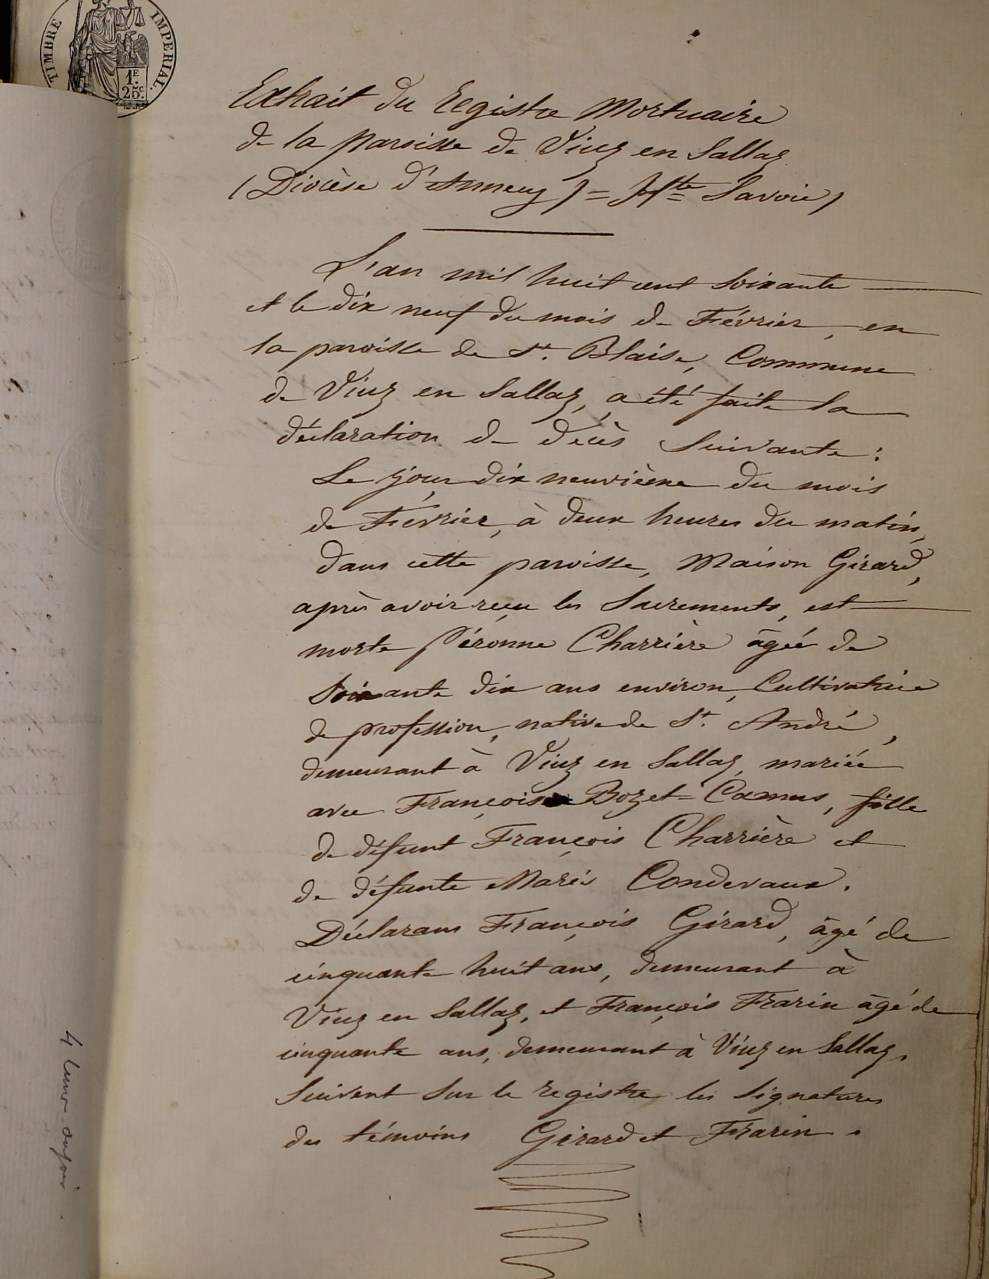 TIMBRE IMPERIAL.
1F.
25c.
Extrait du Registre Mortuaire
de la paroisse de Viuz en Sallaz
(Diocèse d'Annecy) = Hte Savoie)
L'an mil huit cent soixante
et le dix neuf du mois de Février, en
la paroisse de St. Blaise, Commune
de Viuz en Sallaz, a été faite la
déclaration de décès suivante :
Le jour dix neuvième du mois
de Février, à deux heures du matin,
dans cette paroisse, Maison Girard,
après avoir reçu les Sacrements, est
morte Péronne Charrière âgée de
soixante dix ans environ, Cultivatrice
de profession, native de St. André,
demeurant à Viuz en Sallaz, mariée
avec François Bozet-Camus, fille
de défunt François Charrière et
de défunte Marie Condevaux.
Déclarans François Girard, âgé de
cinquante huit ans, demeurant à
Viuz en Sallaz, et François Frarin âgé de
cinquante ans, demeurant à Viuz en Sallaz.
Suivent sur le registre les signatures
des témoins Girard et Frarin.